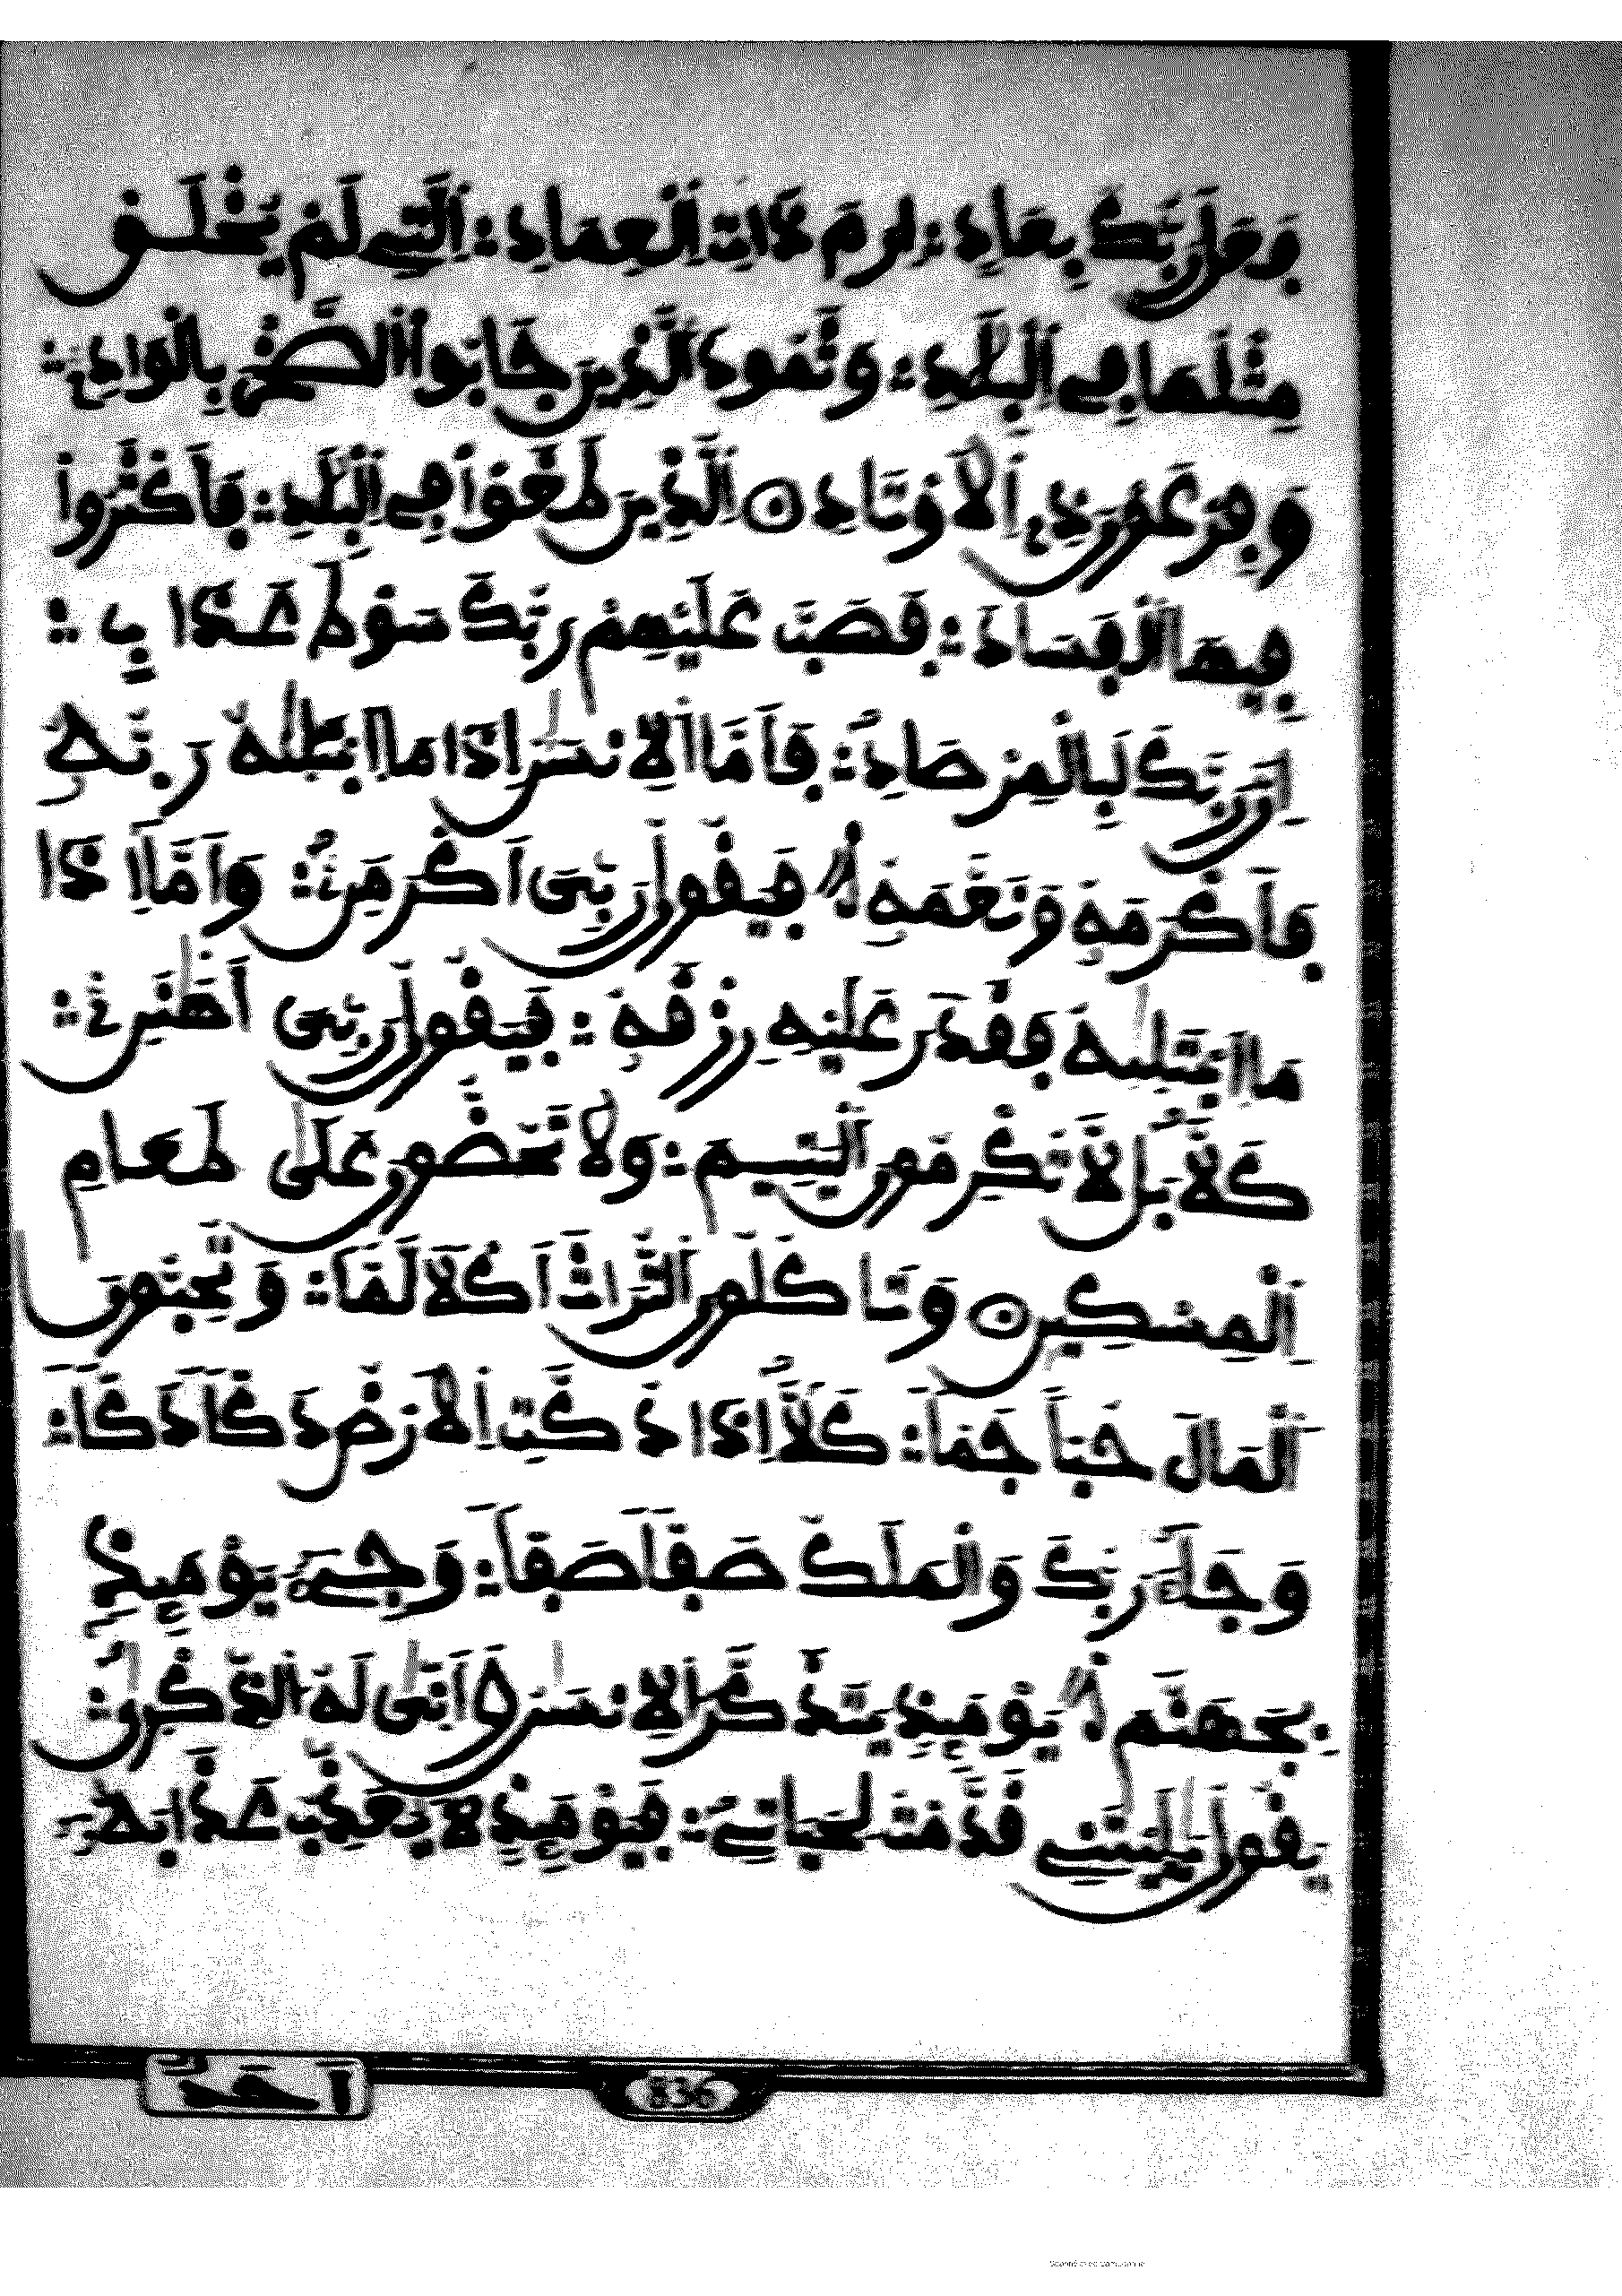 فَعَلَ رَبُّكَ بِعَادٍ ؞ اِرَمَ ذَاتِ اِ۬لْعِمَادِ ؞ اِ۬لتِے لَمْ يُخْلَقْ
مِثْلُهَا فِے اِ۬لْبِلَٰدِ ؞ وَثَمُودَ اَ۬لذِينَ جَابُوا۟ اُ۬لصَّخْرَ بِالْوَادِۦ ؞
وَفِرْعَوْنَ ذِے اِ۬لَاوْتَادِ ۝ اِ۬لذِينَ طَغَوْا۟ فِے اِ۬لْبِلَٰدِ ؞ فَأَكْثَرُوا۟
فِيهَا اَ۬لْفَسَادَ ؞ فَصَبَّ عَلَيْهِمْ رَبُّكَ سَوْطَ عَذَابٍ ؞
اِنَّ رَبَّكَ لَبِالْمِرْصَادِ ؞ فَأَمَّا اَ۬لِانسَٰنُ إِذَا مَا اَ۪بْتَلَيٰهُ رَبُّهُۥ
فَأَكْرَمَهُۥ وَنَعَّمَهُۥ فَيَقُولُ رَبِّيَ أَكْرَمَنِۦ ؞ وَأَمَّا إِذَا
مَا اَ۪بْتَلَيٰهُ فَقَدَرَ عَلَيْهِ رِزْقَهُۥ ؞ فَيَقُولُ رَبِّيَ أَهَٰنَنِۦ ؞
كَلَّا بَل لَّا تُكْرِمُونَ اَ۬لْيَتِيمَ ؞ وَلَا تَحُضُّونَ عَلَىٰ طَعَامِ
اِ۬لْمِسْكِينِ ۝ وَتَاكُلُونَ اَ۬لتُّرَاثَ أَكْلًا لَّمًّا ؞ وَتُحِبُّونَ
اَ۬لْمَالَ حُبًّا جَمًّا ؞ كَلَّا إِذَا دُكَّتِ اِ۬لَارْضُ دَكًّا دَكًّا ؞
وَجَآءَ رَبُّكَ وَالْمَلَكُ صَفًّا صَفًّا ؞ وَجِےٓءَ يَوْمَئِذٍۢ
بِجَهَنَّمَ يَوْمَئِذٍ يَتَذَكَّرُ اُ۬لِانسَٰنُ وَأَنّٰي لَهُ اُ۬لذِّكْر۪يٰ ؞
يَقُولُ يَٰلَيْتَنِے قَدَّمْتُ لِحَيَاتِے ؞ فَيَوْمَئِذٍ لَّا يُعَذِّبُ عَذَابَهُۥ
أَحَدٌ
836